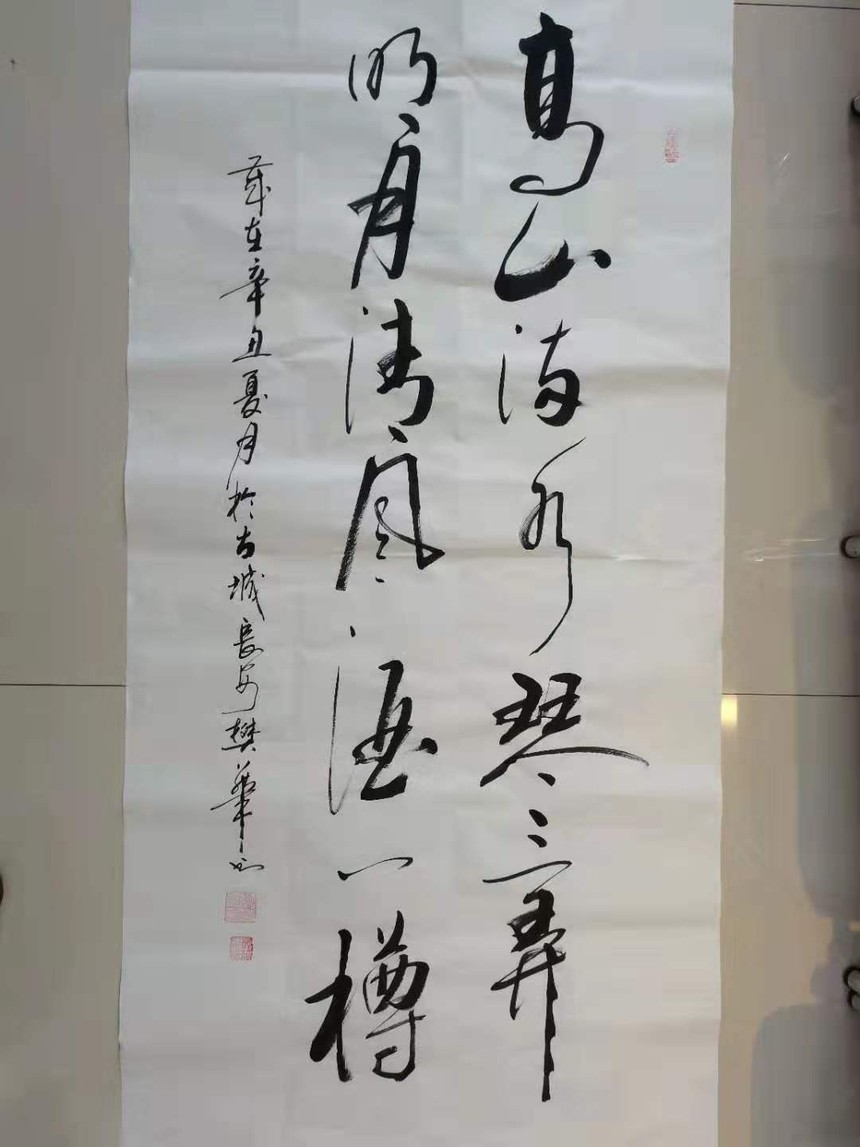 高山流水琴三弄
明月清风酒一樽
岁在辛丑夏月於古城长安樊华